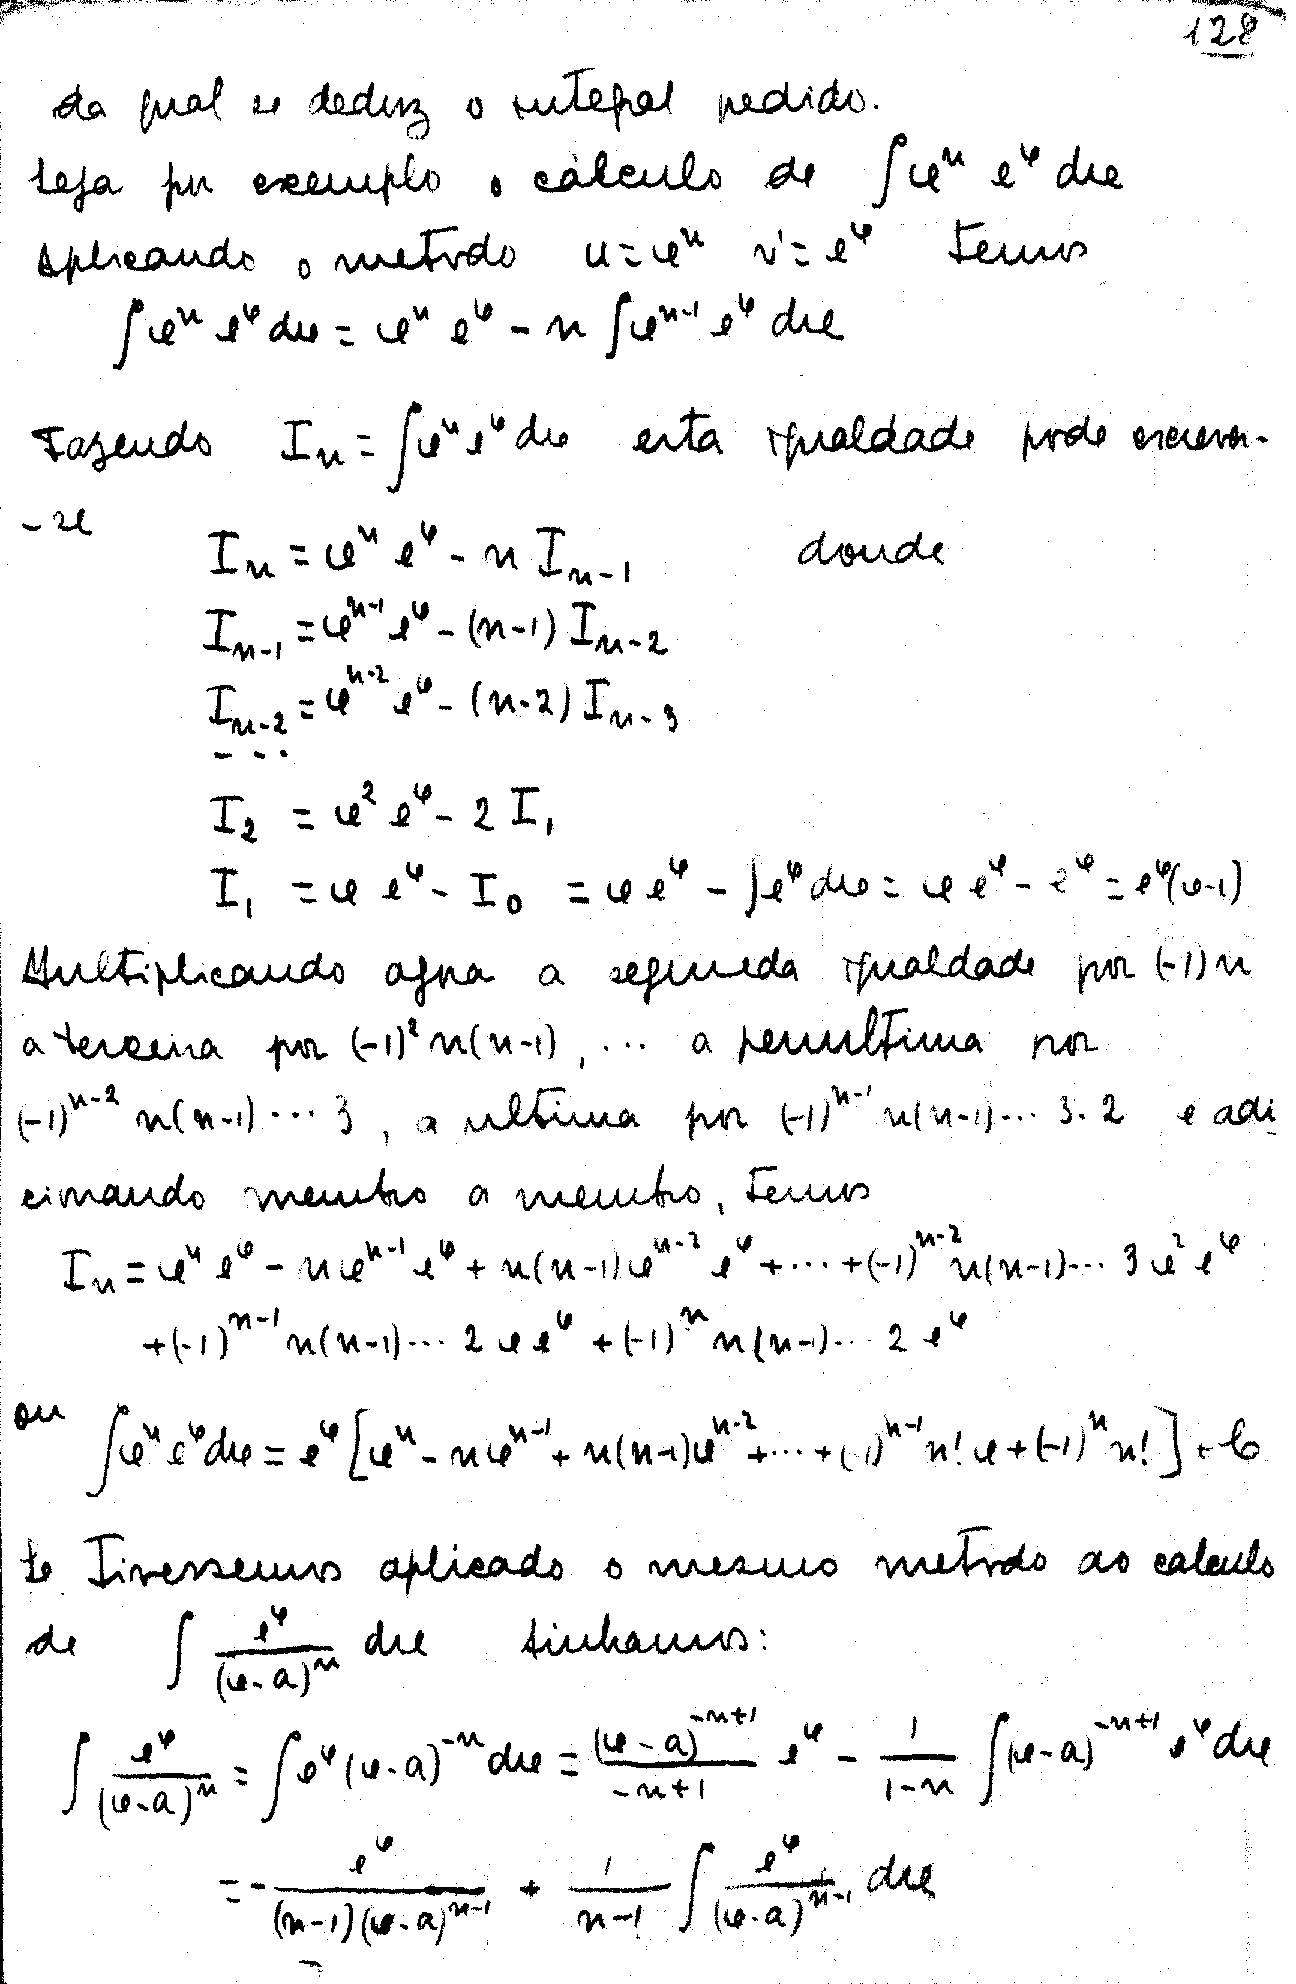 128
da qual se deduz o integral pedido.
Seja por exemplo o cálculo de ∫xⁿ eˣ dx
Aplicando o metodo u=xⁿ v'=eˣ temos
∫xⁿ eˣ dx = xⁿ eˣ - n ∫xⁿ⁻¹ eˣ dx
Fazendo Iₙ = ∫xⁿ eˣ dx esta igualdade pode escrever-
-se
Iₙ = xⁿ eˣ - n Iₙ₋₁ donde
Iₙ₋₁ = xⁿ⁻¹ eˣ - (n-1) Iₙ₋₂
Iₙ₋₂ = xⁿ⁻² eˣ - (n-2) Iₙ₋₃
- - -
I₂ = x² eˣ - 2 I₁
I₁ = x eˣ - I₀ = x eˣ - ∫eˣ dx = x eˣ - eˣ = eˣ(x-1)
Multiplicando agora a segunda igualdade por (-1)n
a terceira por (-1)² n(n-1), ... a penultima por
(-1)ⁿ⁻² n(n-1)...3, a ultima por (-1)ⁿ⁻¹ n(n-1)...3.2 e adi
cionando membro a membro, temos
Iₙ = xⁿ eˣ - n xⁿ⁻¹ eˣ + n(n-1) xⁿ⁻² eˣ + ... + (-1)ⁿ⁻² n(n-1)... 3 x² eˣ
+ (-1)ⁿ⁻¹ n(n-1)... 2 x eˣ + (-1)ⁿ n(n-1)... 2 eˣ
ou ∫xⁿ eˣ dx = eˣ [xⁿ - n xⁿ⁻¹ + n(n-1)xⁿ⁻² + ... + (-1)ⁿ⁻¹ n! x + (-1)ⁿ n!] + C
Se tivessemos aplicado o mesmo metodo ao calculo
de ∫ eˣ/(x-a)ⁿ dx tinhamos:
∫ eˣ/(x-a)ⁿ = ∫eˣ (x-a)⁻ⁿ dx = (x-a)⁻ⁿ⁺¹/(-n+1) eˣ - 1/(1-n) ∫(x-a)⁻ⁿ⁺¹ eˣ dx
= - eˣ/((n-1)(x-a)ⁿ⁻¹) + 1/(n-1) ∫ eˣ/(x-a)ⁿ⁻¹ dx